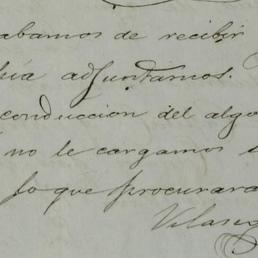 abamos de recibir
hia adjuntamos.
conduccion del algo
no le cargamos
lo que procurara
Velasq